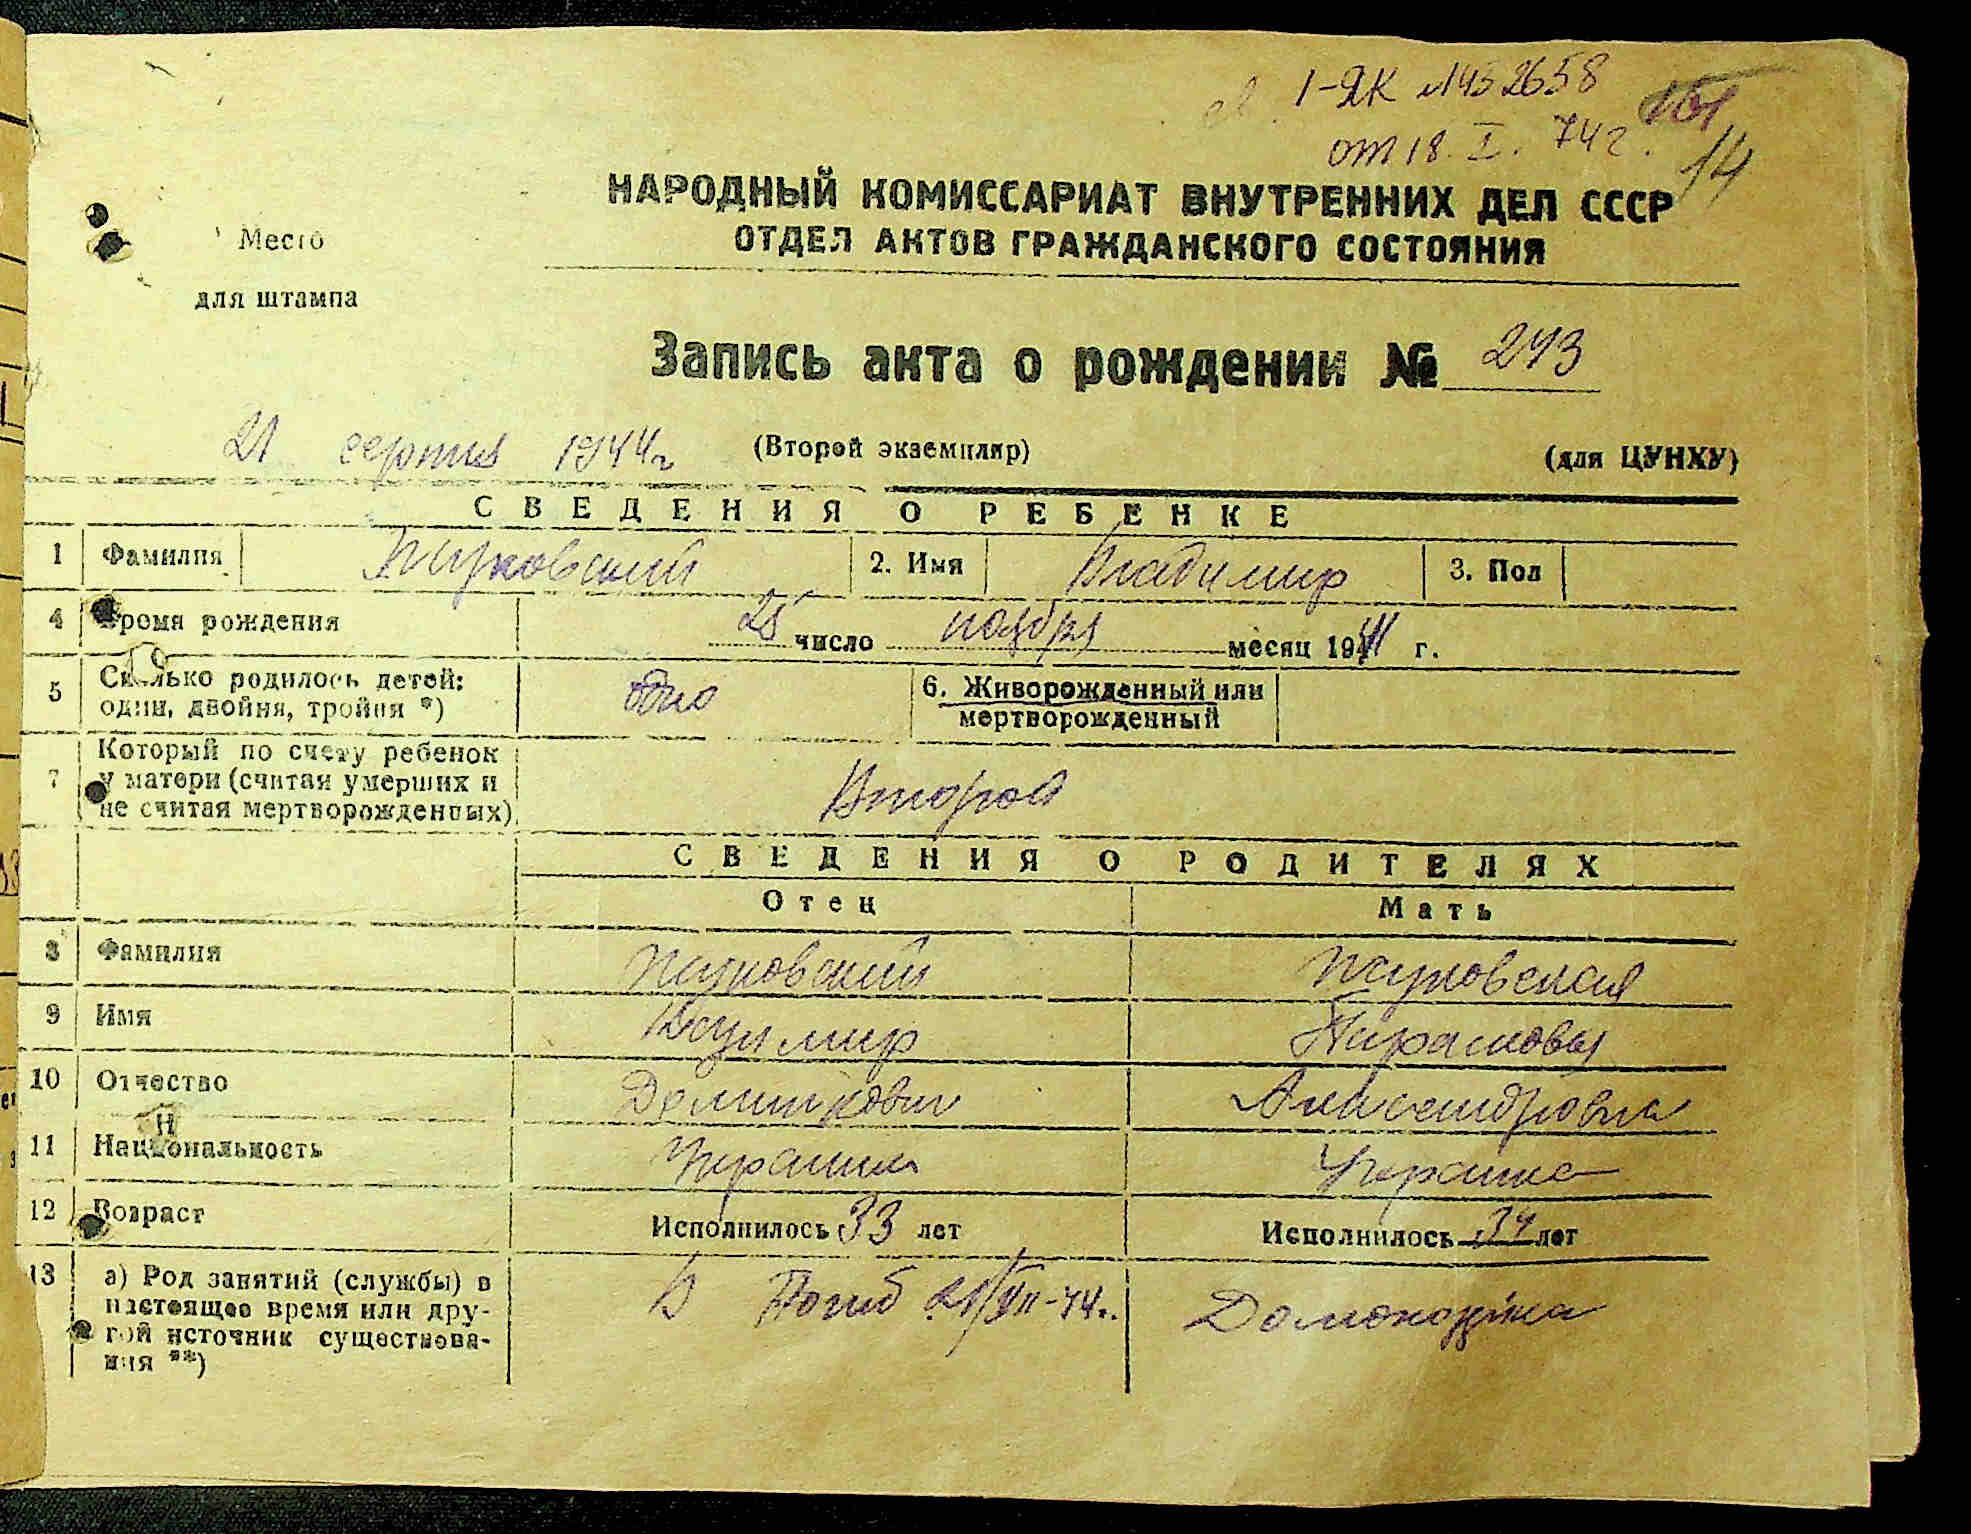 1-ЯК №452658
от 18. I. 74 г.
14
НАРОДНЫЙ КОМИССАРИАТ ВНУТРЕННИХ ДЕЛ СССР
ОТДЕЛ АКТОВ ГРАЖДАНСКОГО СОСТОЯНИЯ
Место
для штампа
Запись акта о рождении № 273
21 серпня 1944 г (Второй экземпляр) (для ЦУНХУ)
СВЕДЕНИЯ О РЕБЕНКЕ
1 Фамилия Жуковский 2. Имя Владимир 3. Пол
4 Время рождения 25 число ноября месяц 1941 г.
5 Сколько родилось детей: одно 6. Живорожденный или
один, двойня, тройня *) мертворожденный
Который по счету ребенок
7 у матери (считая умерших и Второй
не считая мертворожденных)
СВЕДЕНИЯ О РОДИТЕЛЯХ
Отец Мать
8 Фамилия Жуковский Жуковская
9 Имя
10 Отчество Александровна
11 Национальность Украинец Украинка
12 Возраст Исполнилось 33 лет Исполнилось 34 лет
13 а) Род занятий (службы) в
настоящее время или дру-
гой источник существова-
ния **)
Погиб 21/VII-44 г. Домохозяйка